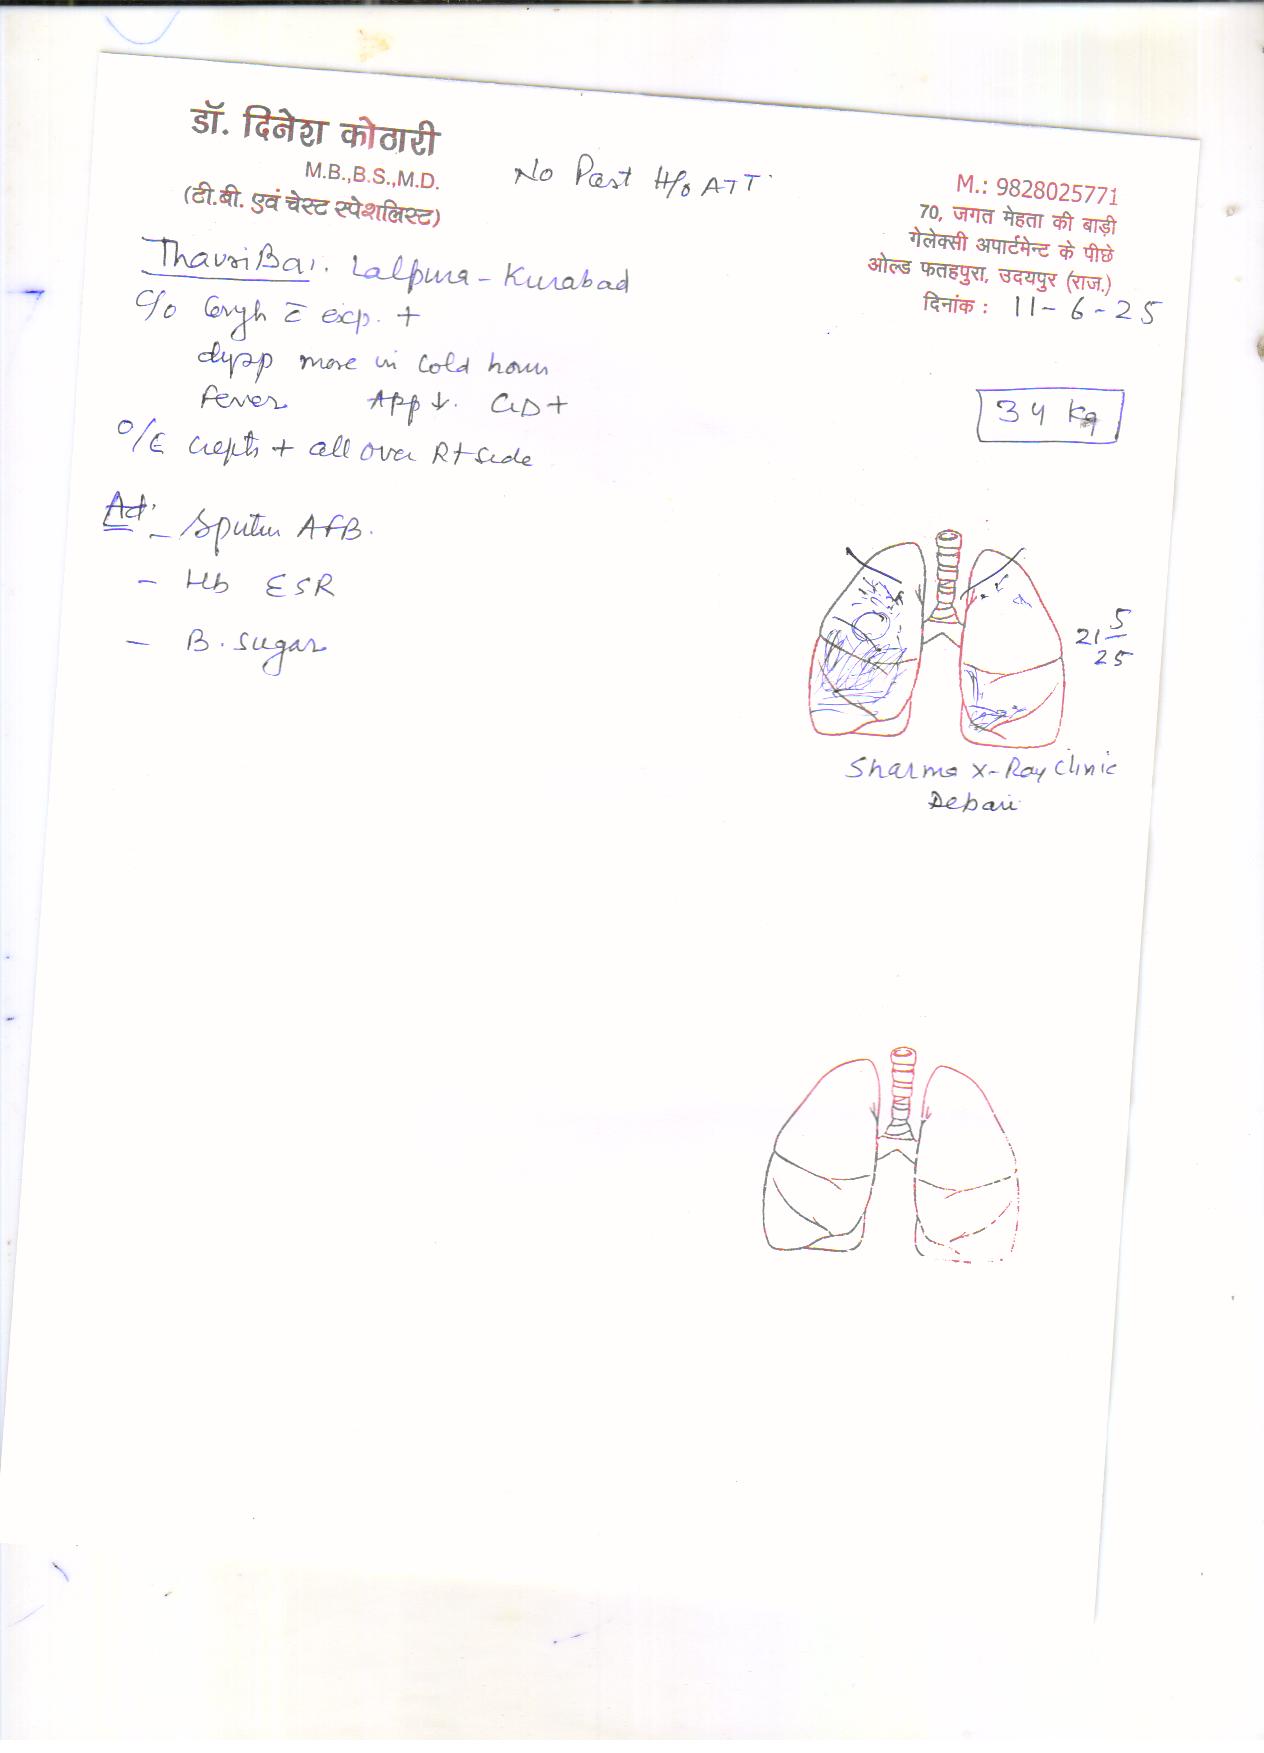 डॉ. दिनेश कोठारी
M.B.,B.S.,M.D.
(टी.बी. एवं चेस्ट स्पेशलिस्ट)
No Past H/o ATT
M.: 9828025771
70, जगत मेहता की बाड़ी
गेलेक्सी अपार्टमेन्ट के पीछे
ओल्ड फतहपुरा, उदयपुर (राज.)
दिनांक : 11-6-25
Thavri Bai. Lalpura - Kurabad
C/o Cough c̄ exp. +
dysp more in cold hours
fever App ↓. +
34 kg
O/E crepts + all over Rt side
Ad.
- Sputum AFB.
- Hb ESR
- B. sugar
21 5/25
Sharma X-Ray Clinic
Debari